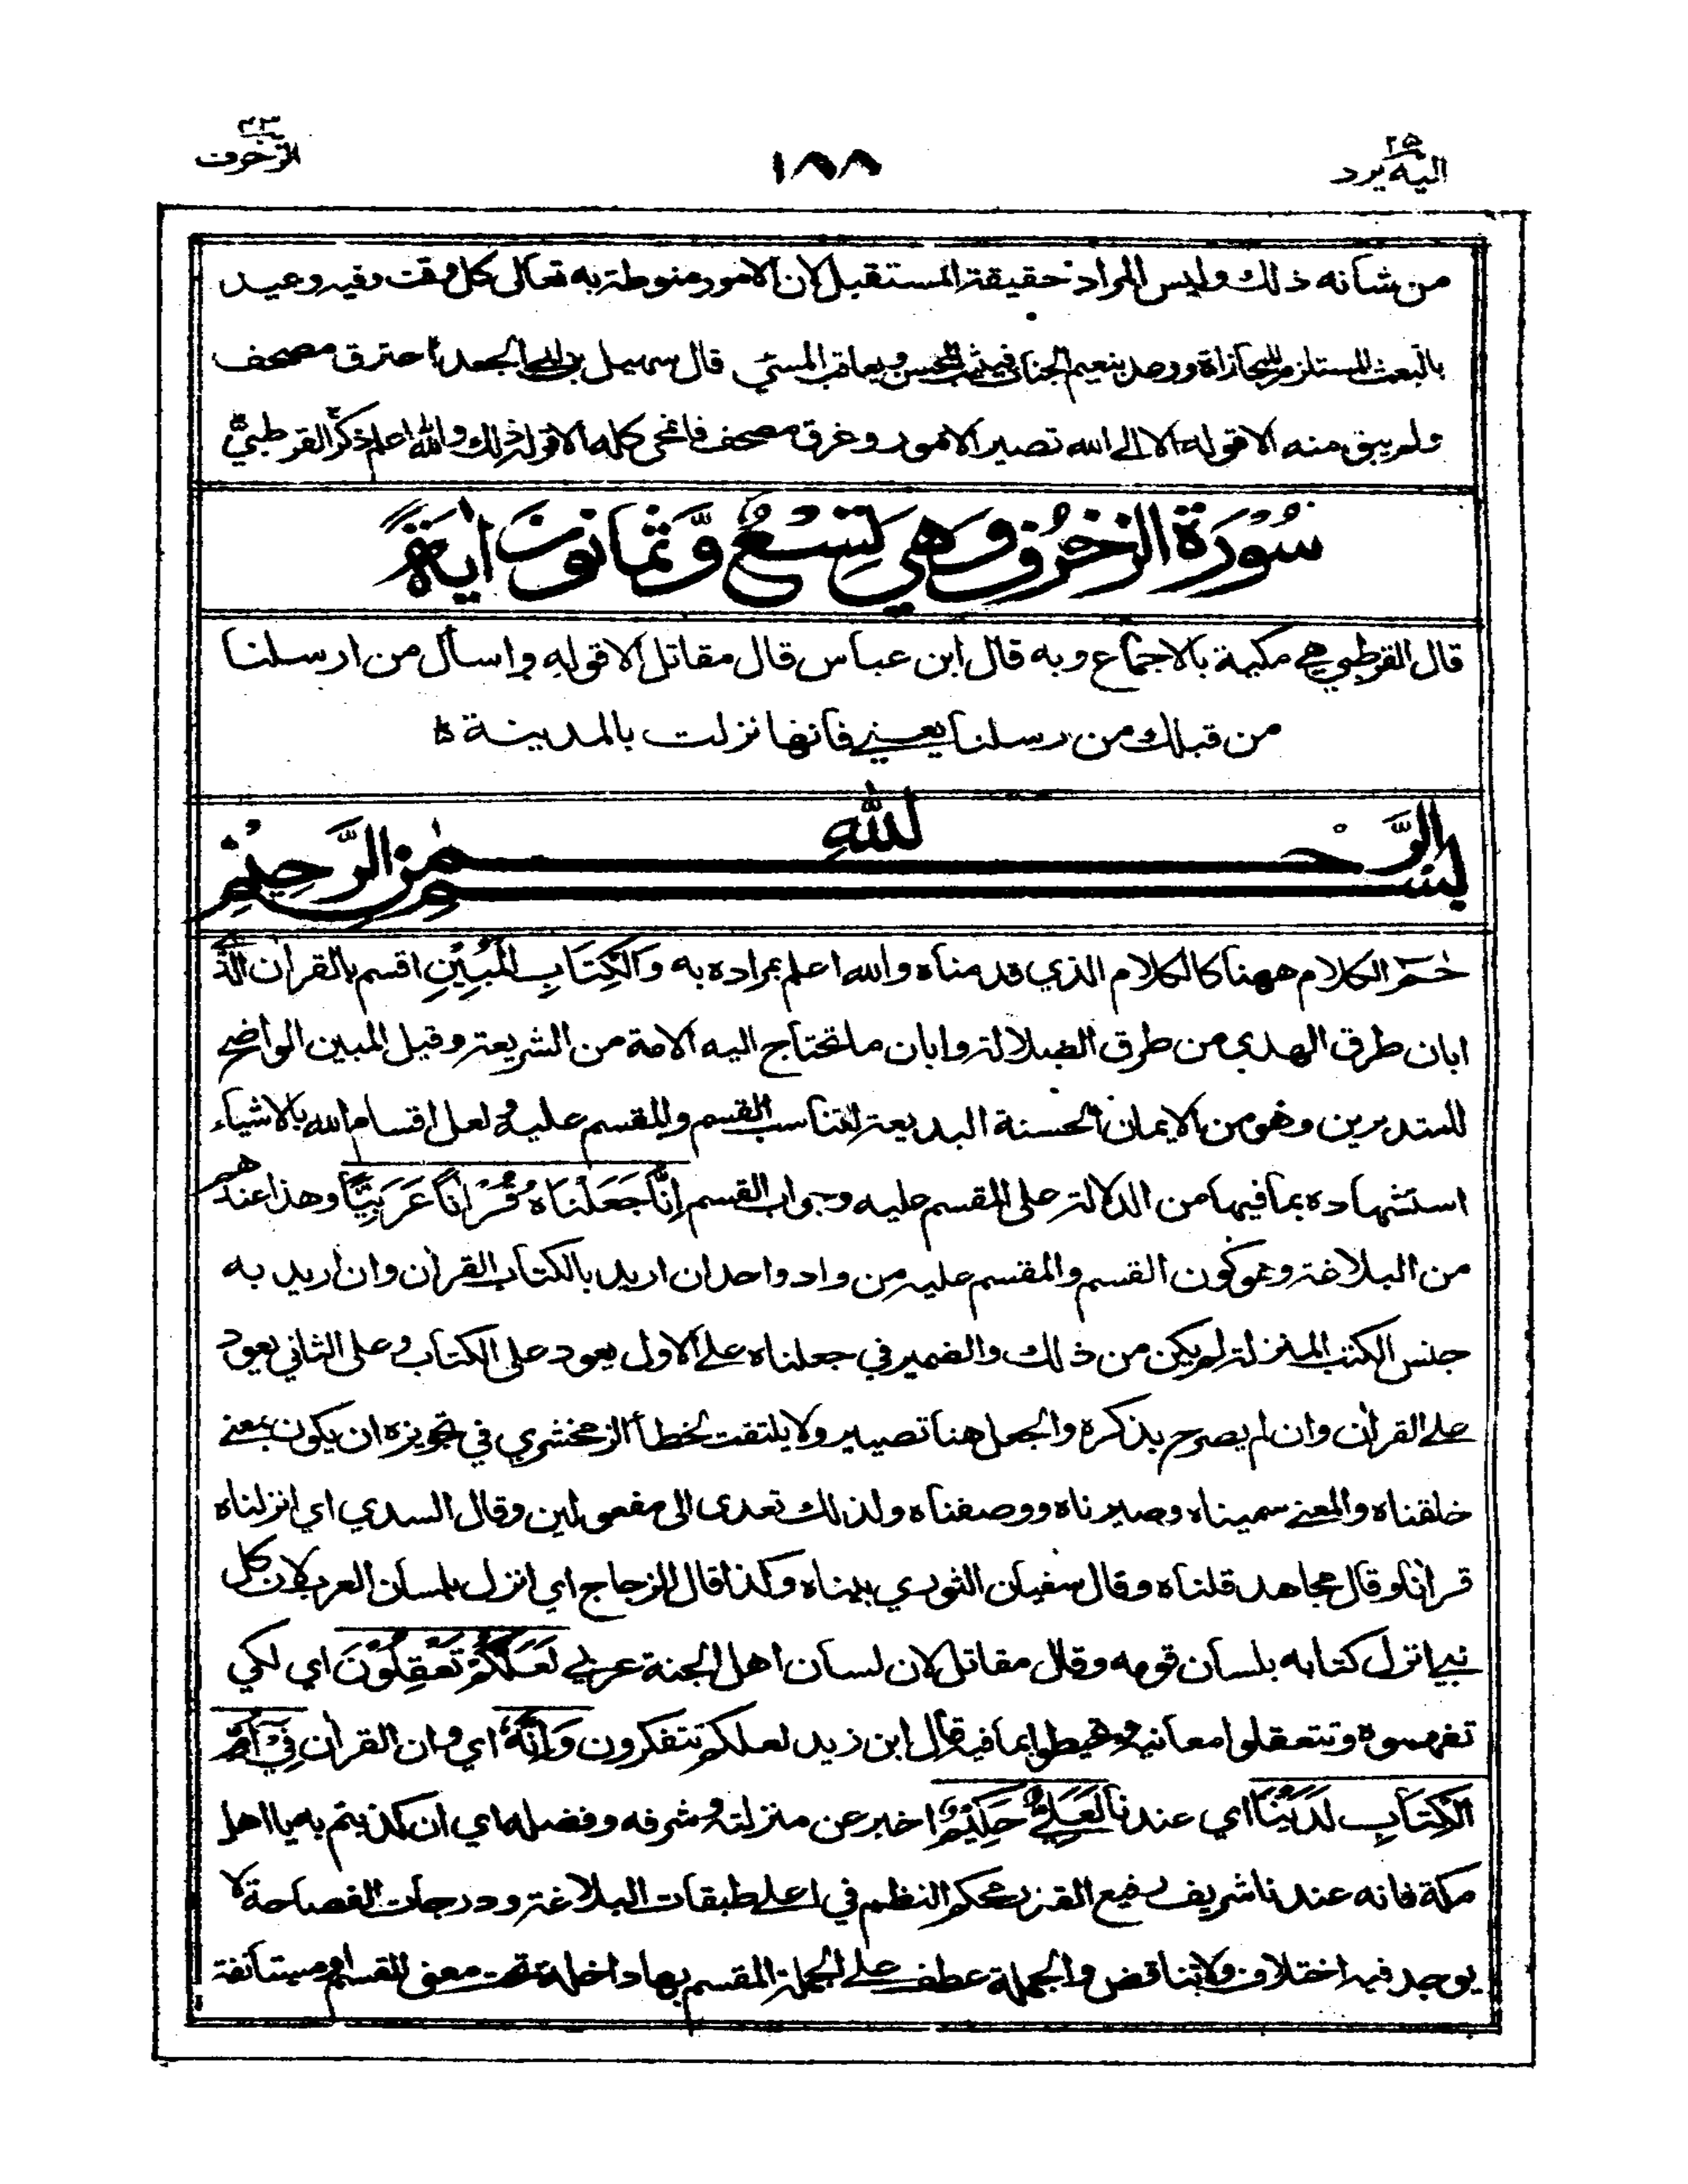 ٢٥
اليه يرد
١٨٨
٤٣
الزخرف
من شانه ذلك وليس المراد حقيقة المستقبل لان الامور منوطة به تعالى كل وقت وفيه وعيد
بالبعث المستلزم للمجازاة ووعد بنعيم الجنان فيثيب المحسن ويعاقب المسئ قال سهيل بن ابي الجعد احترق مصحف
ولم يبق منه الا قوله الا الى الله تصير الامور وغرق مصحف فانمحى كله الا قوله ذلك والله اعلم ذكر القرطبيّ
سُوْرَةُ الزخْرُفِ وَهِي تِسْعٌ وَّثَمَانُونَ اٰيَةً
قال القرطبي هي مكية بالاجماع وبه قال ابن عباس قال مقاتل الا قوله واسأل من ارسلنا
من قبلك من رسلنا يعني فانها نزلت بالمدينة ه
بِسْمِ اللهِ الرَّحْمٰنِ الرَّحِيْمِ
حٰمٓ الكلام ههنا كالكلام الذي قدمناه والله اعلم بمراده به وَالْكِتَابِ الْمُبِيْنِ اقسم بالقران الذي
ابان طرق الهدى من طرق الضلالة وابان ما تحتاج اليه الامة من الشريعة وقيل المبين الواضح
للمتدبرين وهو من الايمان الحسنة البديعة لتناسب القسم والمقسم عليه ولعل اقسام الله بالاشياء
استشهاده بما فيها من الدلالة على المقسم عليه وجواب القسم اِنَّا جَعَلْنَاهُ قُرْاٰنًا عَرَبِيًّا وهذا عندهم
من البلاغة وهو كون القسم والمقسم عليه من واد واحد ان اريد بالكتاب القران وان اريد به
جنس الكتب المنزلة لم يكن من ذلك والضمير في جعلناه على الاول يعود على الكتاب وعلى الثاني يعود
على القران وان لم يصرح بذكره والجعل هنا تصيير ولا يلتفت لخطأ الزمخشري في تجويزه ان يكون بمعنى
خلقناه والمعنى سميناه وصيرناه ووصفناه ولذلك تعدى الى مفعولين وقال السدي اي انزلناه
قرانا وقال مجاهد قلناه وقال سفيان الثوري بيناه وكذا قال الزجاج اي انزل بلسان العرب لان كل
نبي انزل كتابه بلسان قومه وقال مقاتل لان لسان اهل الجنة عربي لَعَلَّكُمْ تَعْقِلُوْنَ اي لكي
تفهموه وتتعقلوا معانيه وتحيطوا بما فيه قال ابن زيد لعلكم تتفكرون وَاِنَّهٗ اي وان القران فِيْٓ اُمِّ
الْكِتَابِ لَدَيْنَا اي عندنا لَعَلِيٌّ حَكِيْمٌ اخبر عن منزلته وشرفه وفضله اي ان كذبتم به يا اهل
مكة فانه عندنا شريف رفيع القدر محكم النظم في اعلى طبقات البلاغة ودرجات الفصاحة لا
يوجد فيه اختلاف ولا تناقض والجملة عطف على الجملة المقسم بها داخلة تحت معنى القسم او مستانفة